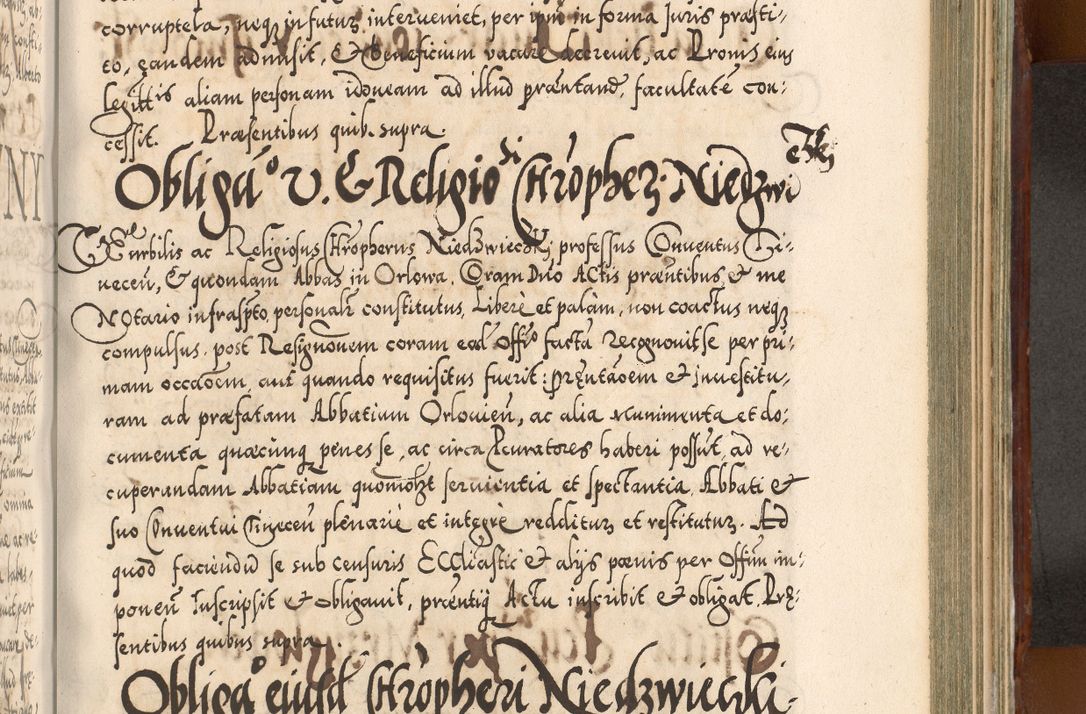 corruptela, neq3 in futur3 interveniet, per ipm in forma Iuris præsti-
to, eandem admisit, & beneficium vacare decrevit, ac Dronis eius
legittis aliam personam idoneam ad illud præntand, facultate con-
cessit. Præsentibus quib. supra.
Obliga͂o V. & Religiosi Chrõpheri Niedzwiecki
Venerabilis ac Religiosus Chrõpherus Niedzwiecki, professus Conventus Ti-
necen, & quondam Abbas in Orlowa, Coram Duo Actis præntibus & me
Notario infrascpto personalr constitutus, Libere et palàm, non coactus neq3
compulsus, post Resignõnem coram eod Offõ facta Recognovit se per pri-
mam occãoem, aut quando requisitus fuerit: præntãoem & Investitu-
ram ad præfatam Abbatium Orlovien, ac alia munimenta et do-
cumenta quæcunq3 penes se, ac circa Pcuratores haberi possut, ad re-
cuperandam Abbatiam quomõlt servientia et spectantia, Abbati &
suo Conventui Tinecen plenariè et integrè redditur3 et restitutur3. Ad
quod faciendu se sub censuris Eccliastic & alijs pœnis per Offim im-
ponen Inscripsit & obligavit, præntiq3 Actu inscribit & obligat. Præ-
sentibus quibus supra.
Obliga͂o eiusd Chrõpheri Niedzwiecki.